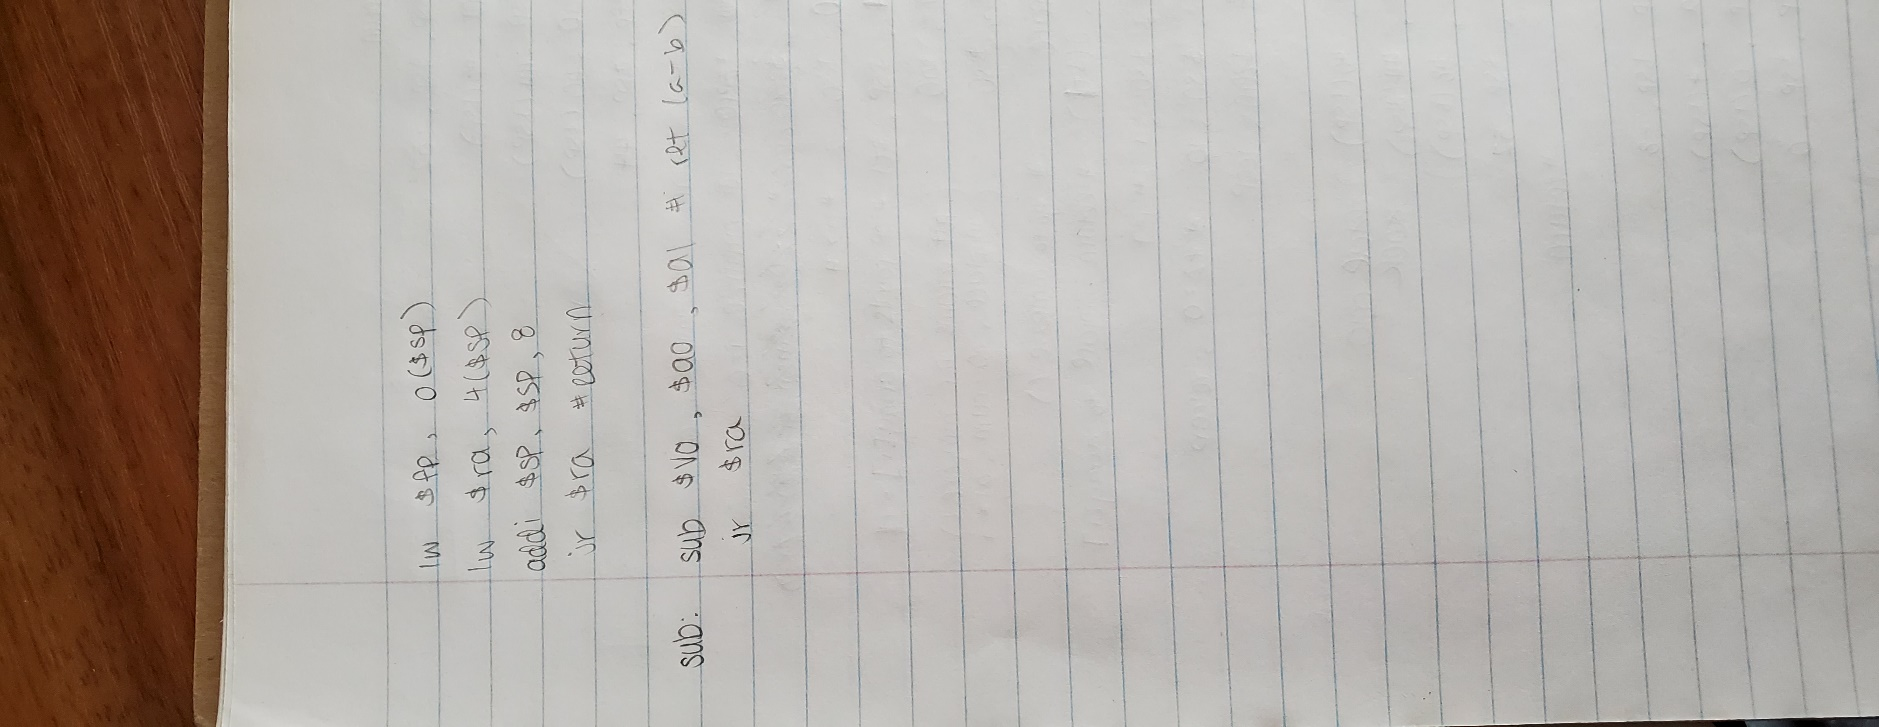 lw $fp, 0($sp)
lw $ra, 4($sp)
addi $sp, $sp, 8
jr $ra #return
sub: sub $v0, $a0, $a1 # ret (a-b)
jr $ra